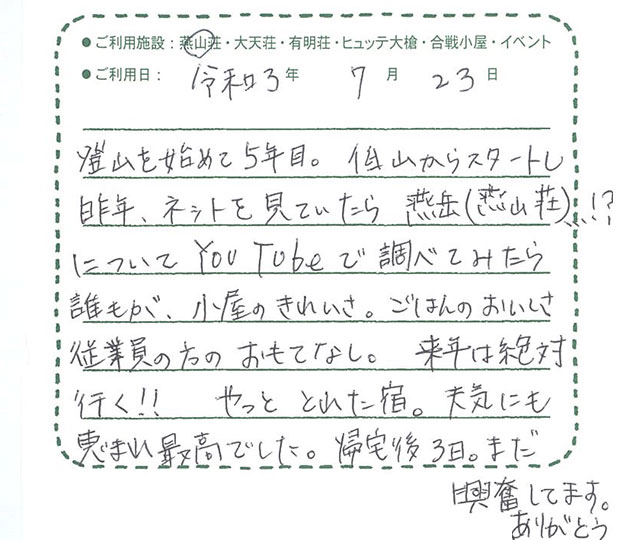 ●ご利用施設：燕山荘・大天荘・有明荘・ヒュッテ大槍・合戦小屋・イベント
●ご利用日： 令和3年 7月 23日
登山を始めて5年目。 低山からスタートし
昨年、ネットを見ていたら 燕岳(燕山荘)...!?
について YOU TUbeで調べてみたら
誰もが、小屋のきれいさ。ごはんのおいしさ
従業員の方の おもてなし。 来年は絶対
行く!! やっと とれた宿。天気にも
恵まれ最高でした。帰宅後3日。まだ
興奮してます。
ありがとう